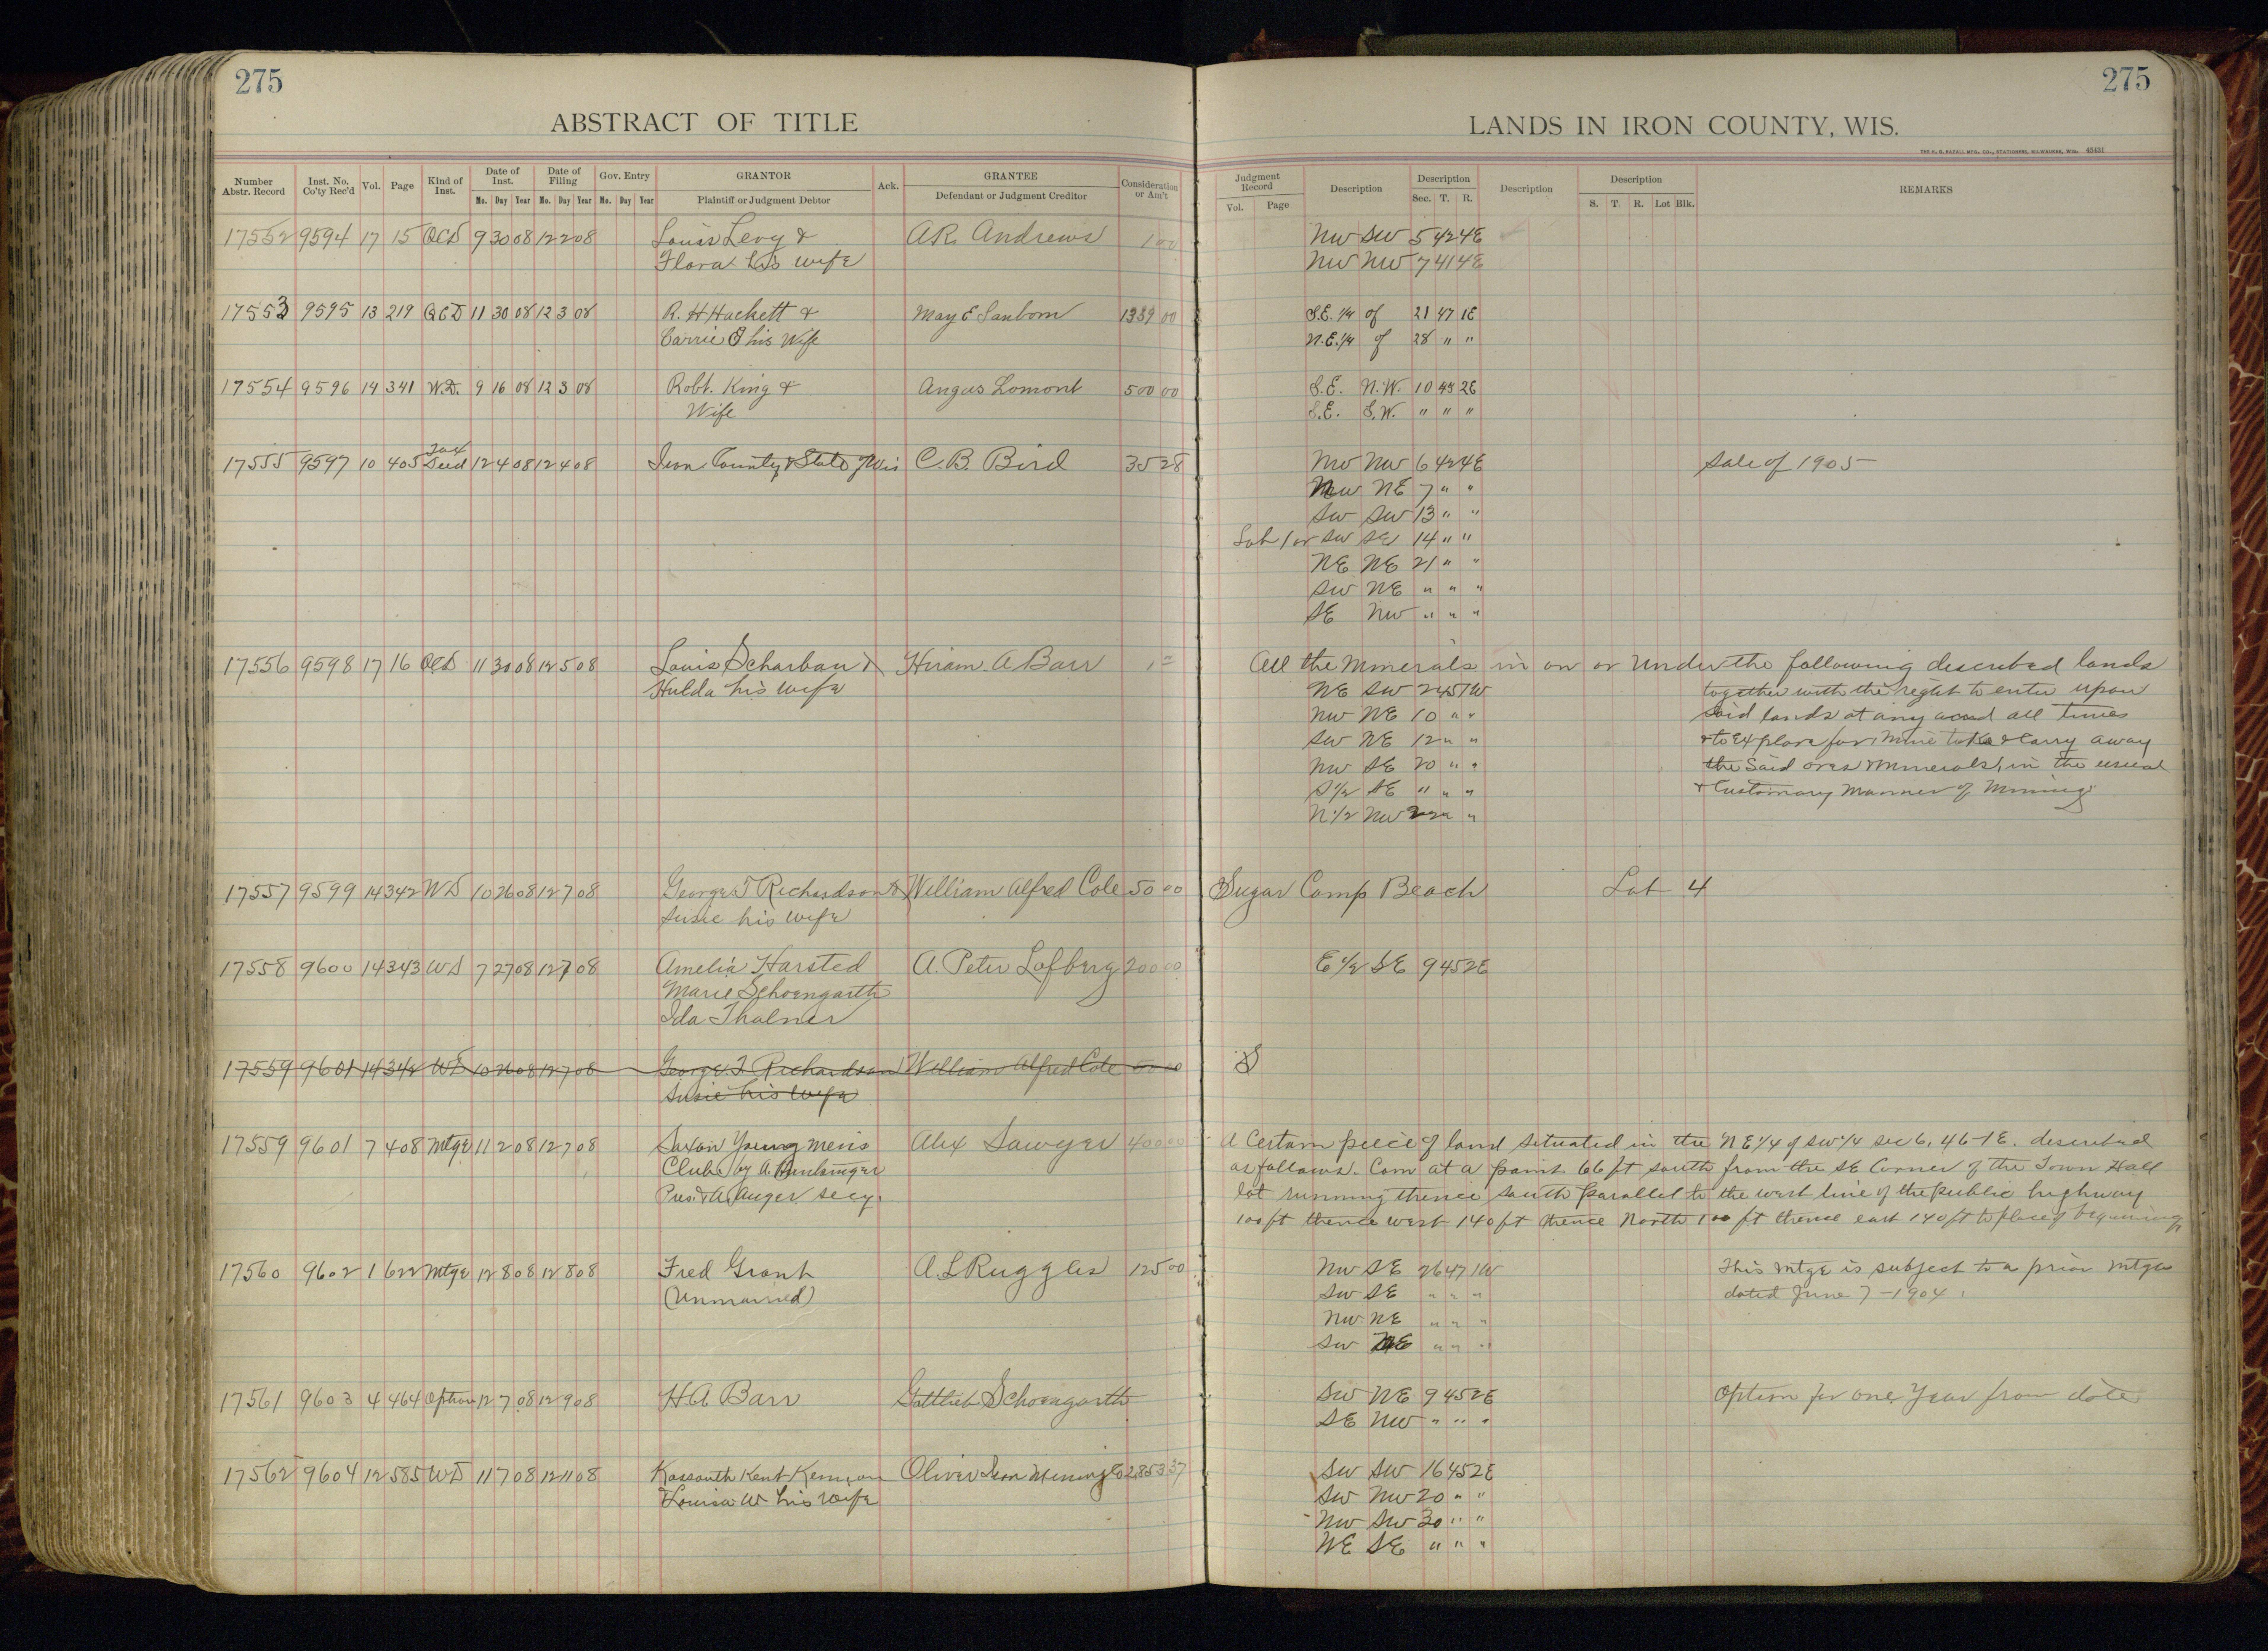 275
ABSTRACT OF TITLE
Number Abstr. Record Inst. No. Co'ty Rec'd Vol. Page Kind of Inst. Date of Inst. Mo. Day Year Date of Filing Mo. Day Year Gov. Entry Mo. Day Year GRANTOR Plaintiff or Judgment Debtor Ack. GRANTEE Defendant or Judgment Creditor Consideration or Am't
17552 9594 17 15 QCD 9 30 08 12 2 08 Louis Levy & A R. Andrews 1 00
Flora his wife
17553 9595 13 219 QCD 11 30 08 12 3 08 R. H Hackett & May E Sanborn 1339 00
Carrie his Wife
17554 9596 14 341 W.D. 9 16 08 12 3 08 Robt. King & Angus Lomont 500 00
Wife
17555 9597 10 405 Tax Deed 12 4 08 12 4 08 Iron County & State of Wis C. B. Bird 35 28
17556 9598 17 16 QCD 11 30 08 12 5 08 Louis Scharbau & Hiram A Barr 1 00
Hulda his wife
17557 9599 14 342 WD 10 26 08 12 7 08 George T Richardson & William Alfred Cole 50 00
Susie his wife
17558 9600 14 343 WD 7 27 08 12 7 08 Amelia Harsted A. Peter Lofberg 200 00
Marie Schoengarth
Ida Thalner
17559 9601 14 342 WD 10 26 08 12 7 08 George T. Richardson William Alfred Cole 50 00
Susie his wife
17559 9601 7 408 Mtge 11 2 08 12 7 08 Saxon Young Mens Alex Sawyer 400 00
Club by A.
Pres. & A. Auger secy.
17560 9602 1 622 Mtge 12 8 08 12 8 08 Fred Grant A. L Ruggles 125 00
(Unmarried)
17561 9603 4 464 Option 12 7 08 12 9 08 H A Barr Gottlieb Schoengarth
17562 9604 12 585 WD 11 7 08 12 11 08 Kossouth Kent Kennan Oliver Iron Mining Co 2853 37
& Louisa W his wife
275
LANDS IN IRON COUNTY, WIS.
THE H. G. RAZALL MFG. CO., STATIONERS, MILWAUKEE, WIS. 45431
Judgment Record Vol. Page Description Description Sec. T. R. Description Description S. T. R. Lot Blk. REMARKS
NW SW 5 42 4E
NW NW 7 41 4E
S.E. 1/4 of 21 47 1E
N.E. 1/4 of 28 " "
S.E. N.W. 10 44 2E
S.E. S.W. " " "
NW NW 6 42 4E Sale of 1905
NW NE 7 " "
SW SW 13 " "
Lot 1 or SW SE 14 " "
NE NE 21 " "
SW NE " " "
SE NW " " "
All the Minerals in on or Under the following described lands
NE SW 2 45 1W together with the right to enter upon
NW NE 10 " " said lands at any and all times
SW NE 12 " " & to Explore for, Mine take & Carry away
NW SE 20 " " the Said ores & Minerals, in the usual
S 1/2 SE " " " & Customary Manner of Mining.
N 1/2 NW 22 " "
Sugar Camp Beach Lot 4
E 1/2 SE 9 45 2E
S
A Certain peice of land situated in the NE 1/4 of SW 1/4 sec 6. 46-1E. described
as follows. Com at a point 66 ft south from the SE Corner of the Town Hall
lot running thence south parallel to the west line of the public highway
100 ft thence west 140 ft thence North 100 ft thence east 140 ft to place of beginning
NW SE 26 47 1W This Mtge is subject to a prior Mtge
SW SE " " " dated June 7 - 1904.
NW NE " " "
SW NE " " "
SW NE 9 45 2E Option for one Year from date
SE NW " " "
SW SW 16 45 2E
SW NW 20 " "
NW SW 30 " "
NE SE " " "